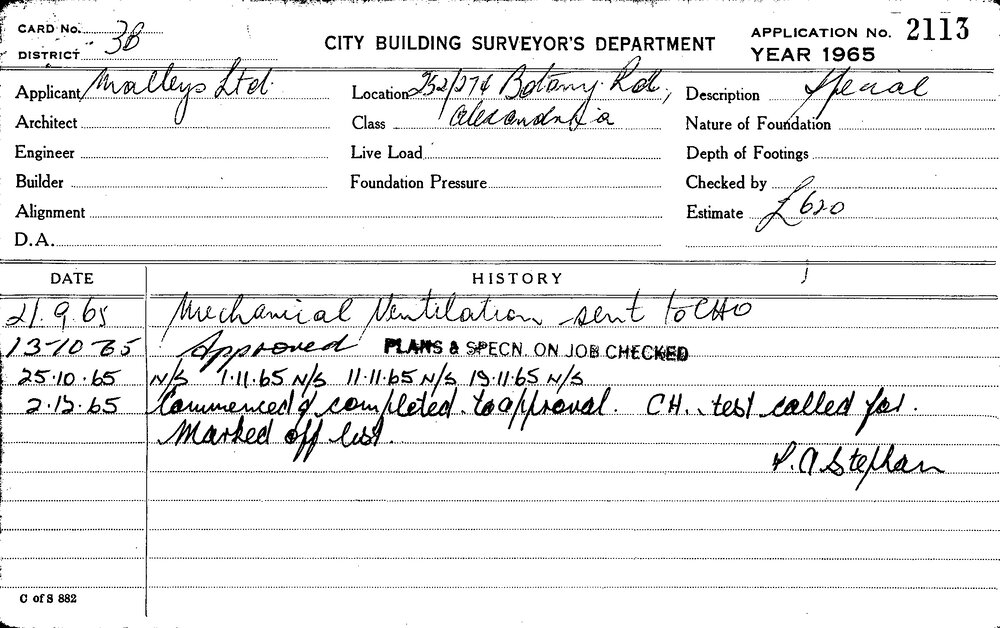 CARD No. 3B
DISTRICT
CITY BUILDING SURVEYOR'S DEPARTMENT
APPLICATION No. 2113
YEAR 1965
Applicant Malleys Ltd.
Location 252/274 Botany Rd,
Description Special
Architect
Class Alexandria
Nature of Foundation
Engineer
Live Load
Depth of Footings
Builder
Foundation Pressure
Checked by
Alignment
Estimate £620
D.A.
DATE HISTORY
21.9.65 Mechanical Ventilation sent to CHO
13-10-65 Approved PLANS & SPECN. ON JOB CHECKED
25.10.65 N/S 1.11.65 N/S 11.11.65 N/S 19.11.65 N/S
2.12.65 Commenced & completed to approval. CH. test called for.
Marked off list.
P. A Stephan
C of S 882